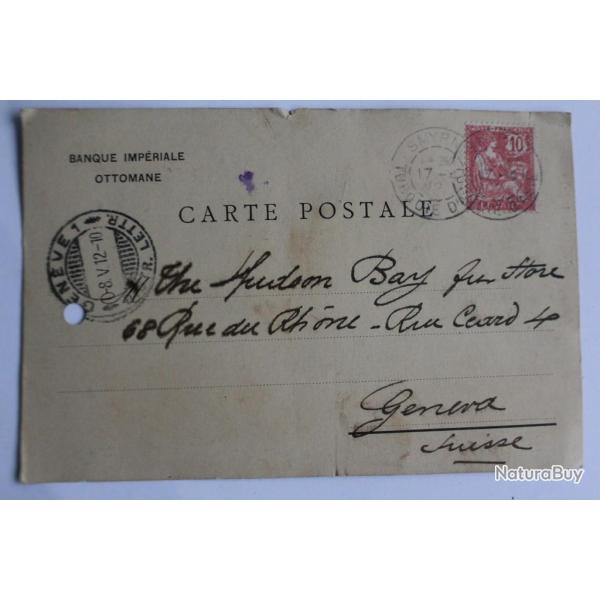 BANQUE IMPÉRIALE
OTTOMANE
CARTE POSTALE
10
SMYRNE
17
GENÈVE 1
LETTR.
8.V.12-10
The Hudson Bay fur Store
68 Rue du Rhône - Rue Céard 4
Geneva
Suisse
NaturaBuy